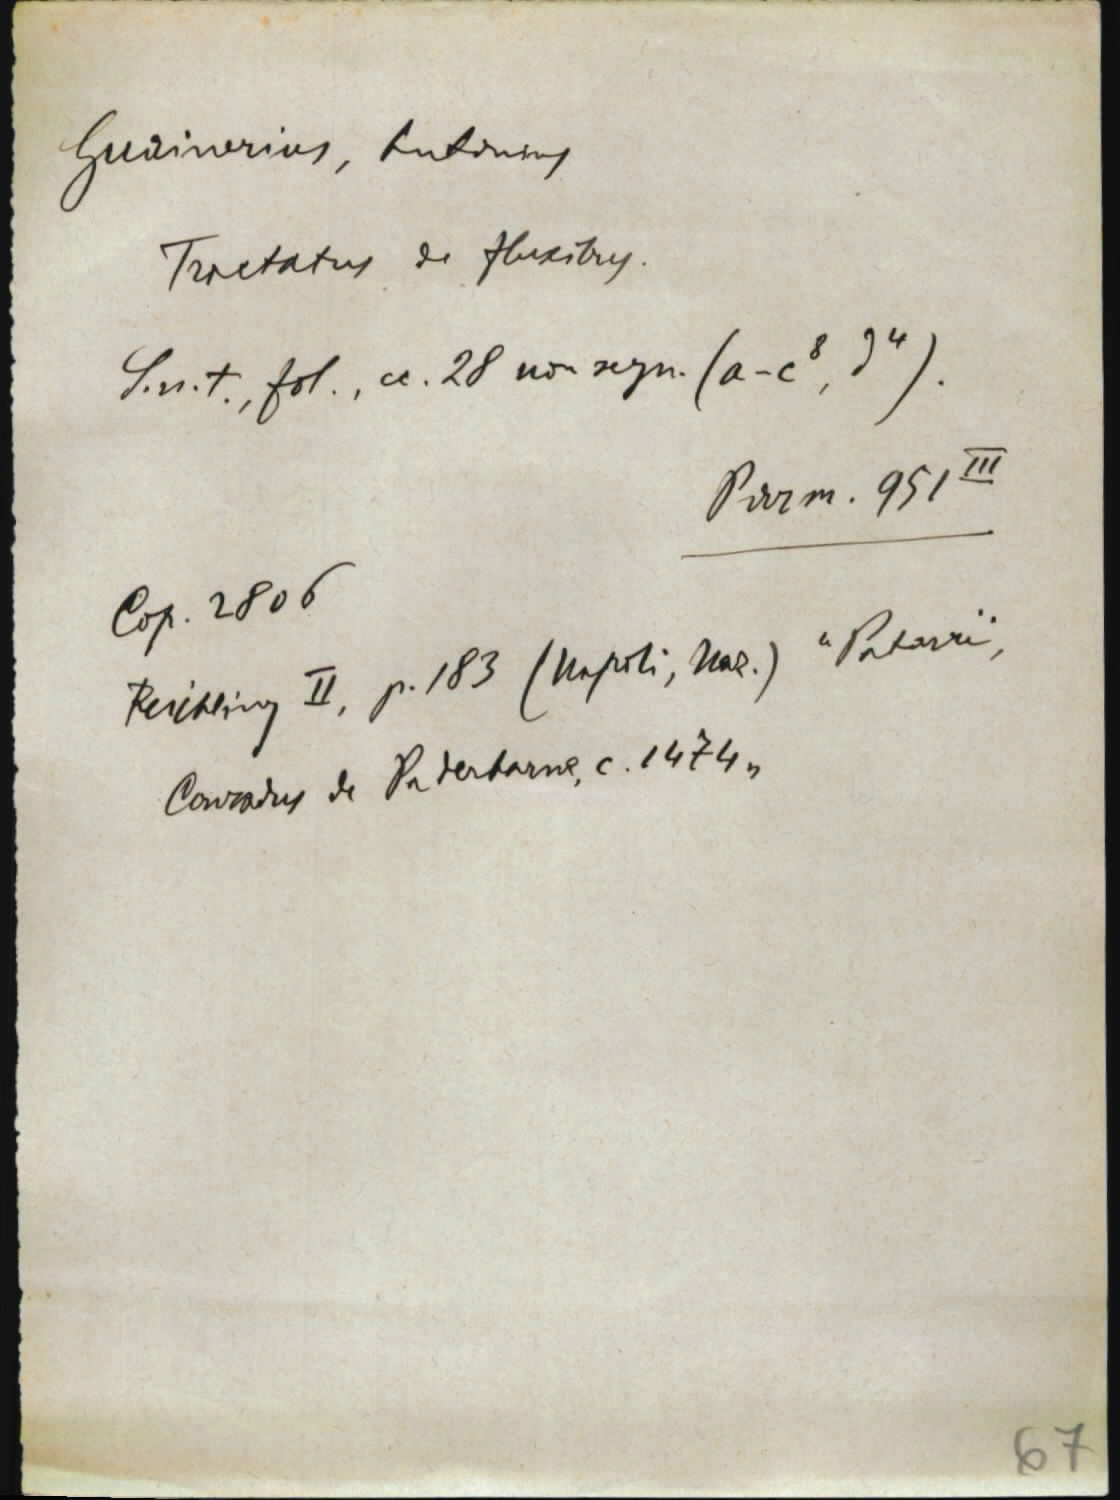 Guainerius, Antonius
Tractatus de fluxibus.
S.n.t., fol., cc. 28 non segn. (a-c⁸, d⁴).
Parm. 951 III
Cop. 2806
Reichling II, p. 183 (Napoli, Naz.) "Patavii,
Conradus de Paderborne, c. 1474"
67